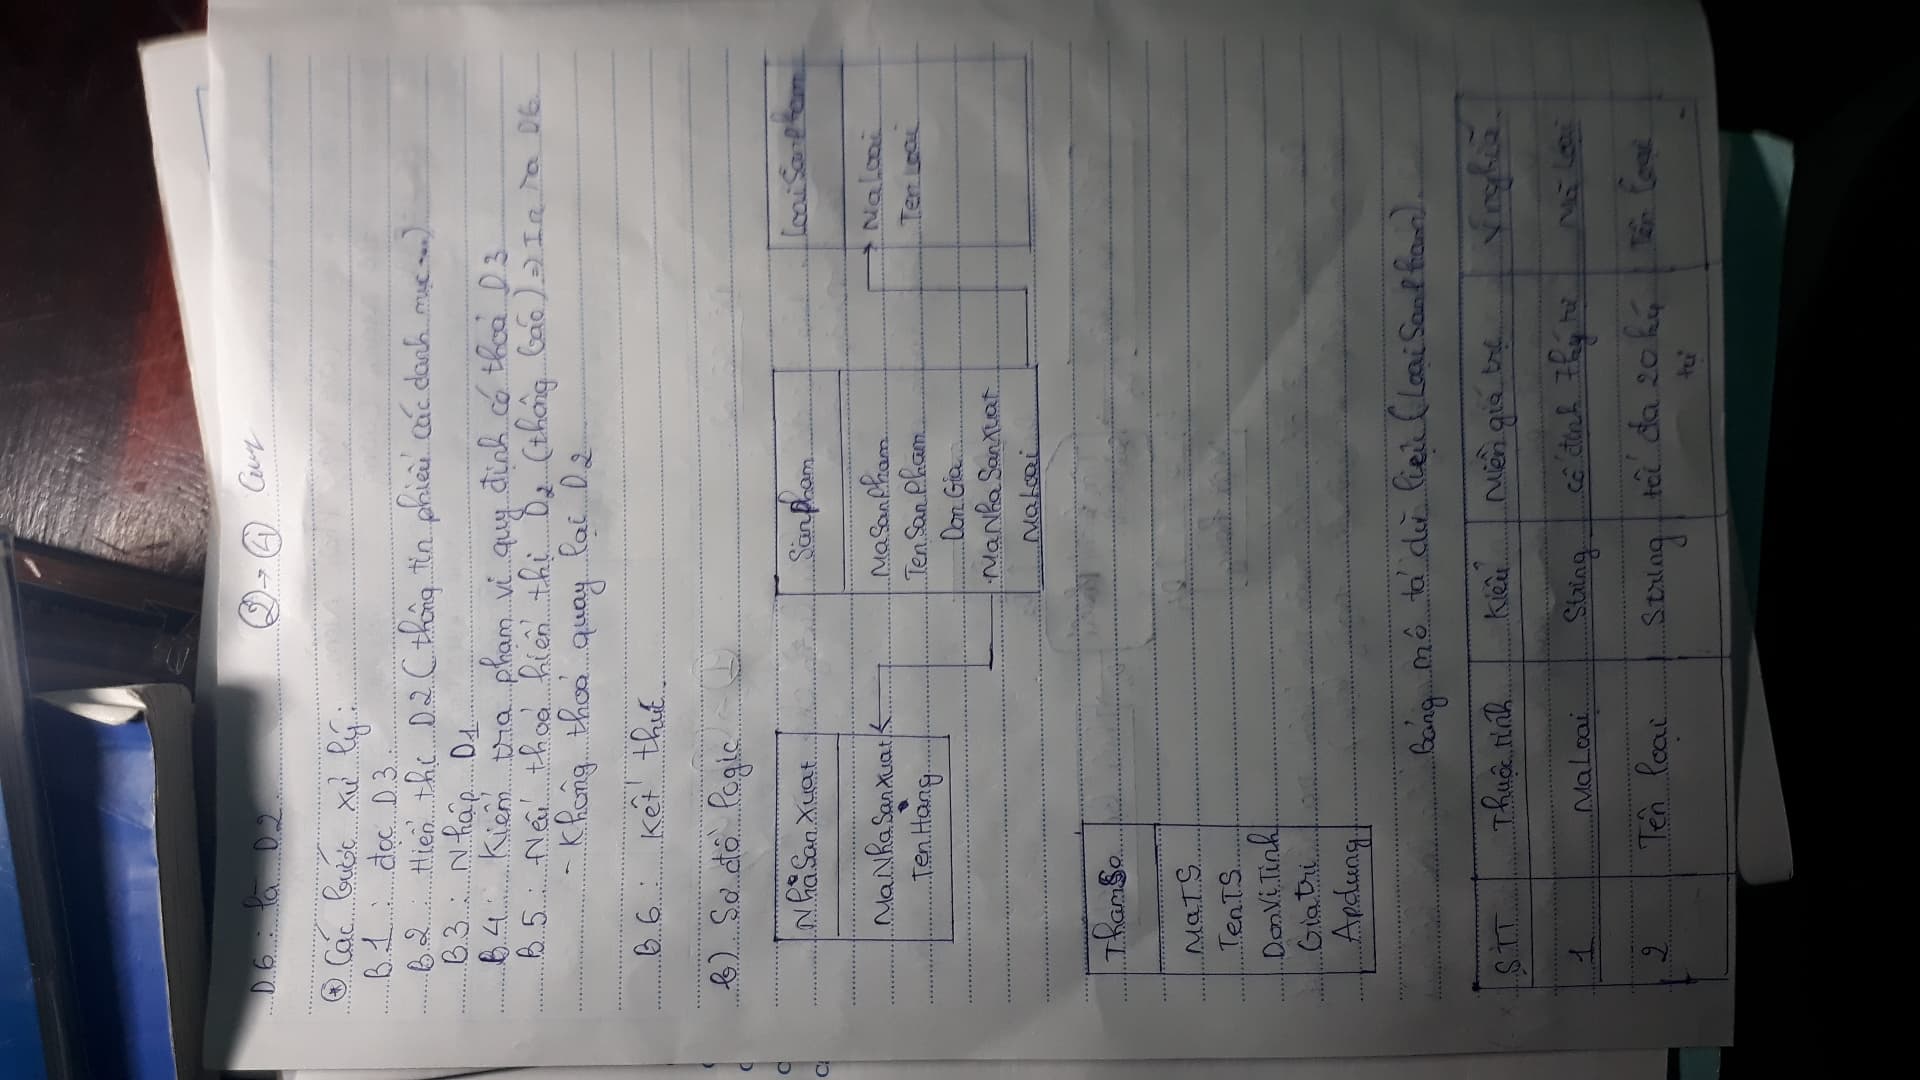 ② → ④
D6 : là D2
⊛ Các bước xử lý:
B.1 : đọc D3.
B2 : Hiển thị D2 (thông tin phiếu các danh mục...)
B3 : Nhập D1
B4 : Kiểm tra phạm vi quy định có thoả D3
B.5 : - Nếu thoả hiển thị D2 (thông báo) => In ra D6.
- Không thoả quay lại D2
B.6 : Kết thúc
b) Sơ đồ logic
NhaSanXuat
MaNhaSanXuat
TenHang
SanPham
MaSanPham
TenSanPham
DonGia
MaNhaSanXuat
MaLoai
LoaiSanPham
MaLoai
TenLoai
ThamSo
MaTS
TenTS
DonViTinh
Giatri
Apdung
bảng mô tả dữ liệu (LoaiSanPham).
STT Thuộc tính Kiểu Miền giá trị Ý nghĩa
1 MaLoai String cố định 7 ký tự Mã loại
2 Tên loại String tối đa 20 ký tự Tên loại